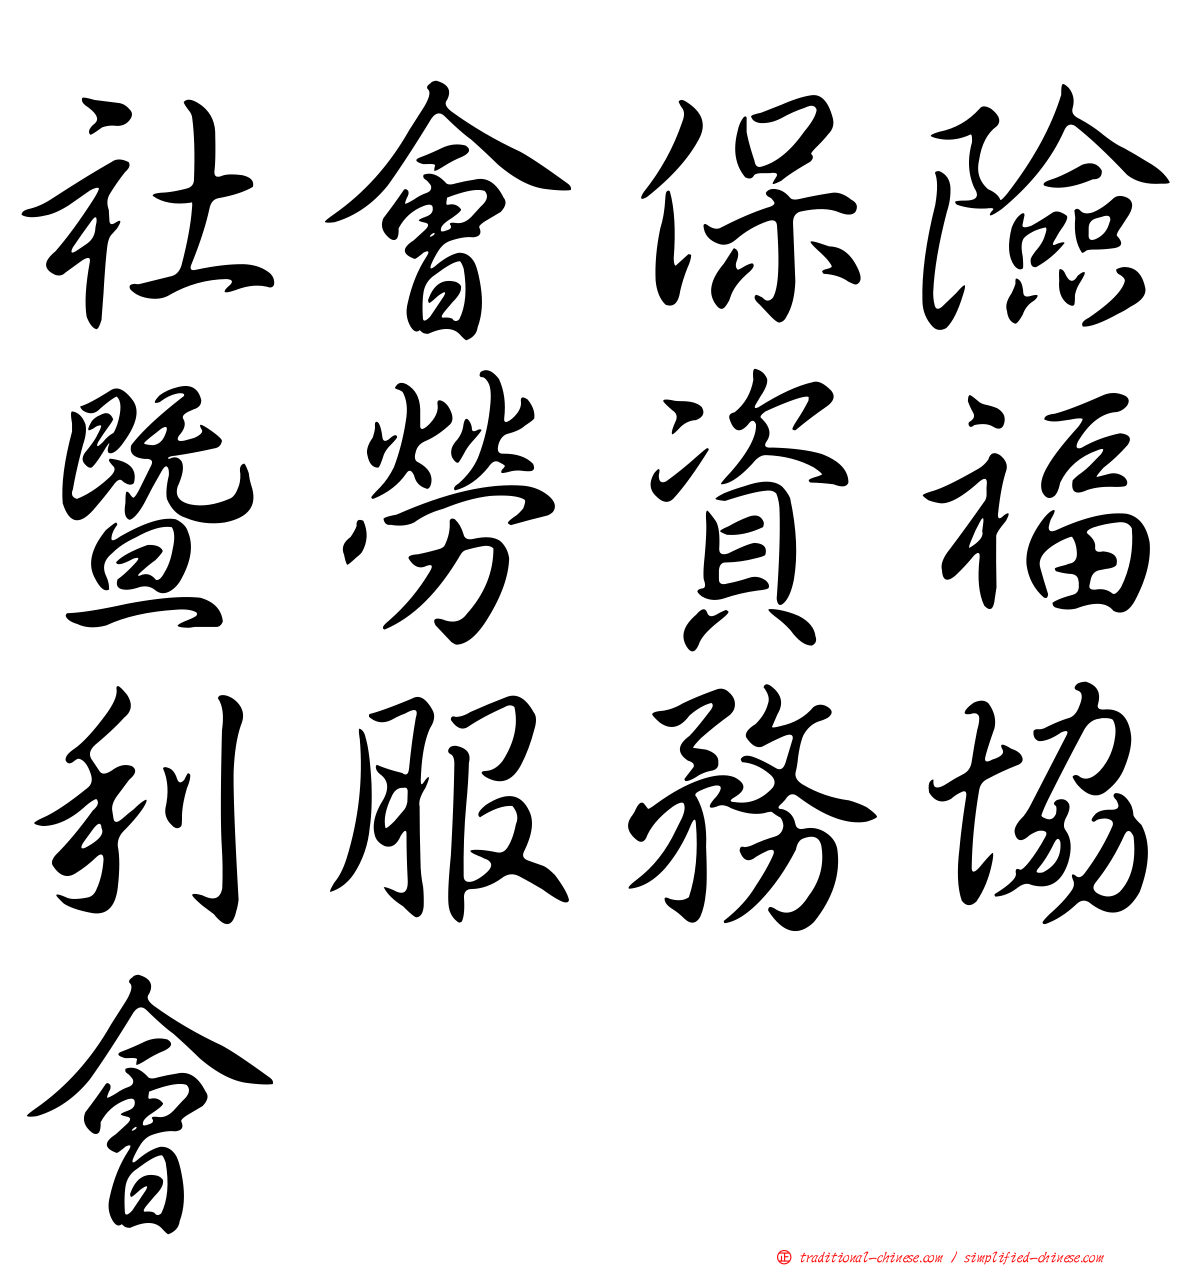 社會保險
暨勞資福
利服務協
會
正 traditional-chinese.com / simplified-chinese.com